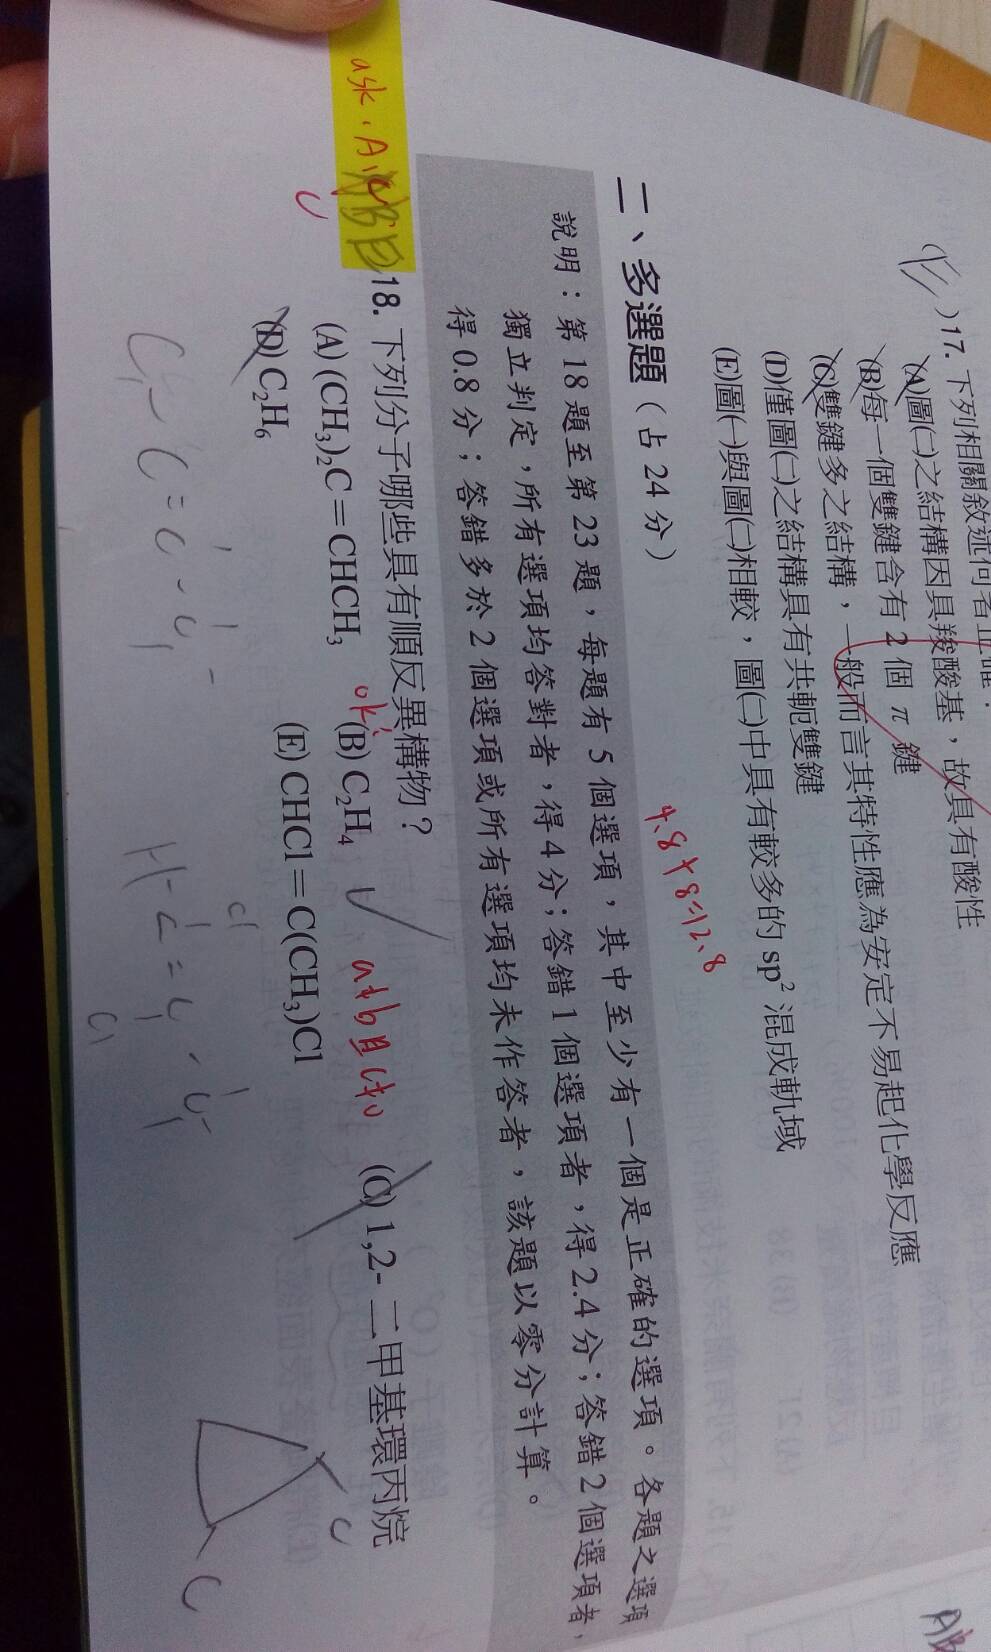 17. 下列相關敘述何者正確：
(A)圖㈡之結構因具羧酸基，故具有酸性
(B)每一個雙鍵含有 2 個 π 鍵
(C)雙鍵多之結構，一般而言其特性應為安定不易起化學反應
(D)僅圖㈡之結構具有共軛雙鍵
(E)圖㈠與圖㈡相較，圖㈡中具有較多的 sp² 混成軌域
4.8+8=12.8
二、多選題（占 24 分）
說明：第 18 題至第 23 題，每題有 5 個選項，其中至少有一個是正確的選項。各題之選項
獨立判定，所有選項均答對者，得 4 分；答錯 1 個選項者，得 2.4 分；答錯 2 個選項者，
得 0.8 分；答錯多於 2 個選項或所有選項均未作答者，該題以零分計算。
ask. A.
18. 下列分子哪些具有順反異構物？
(A) (CH₃)₂C＝CHCH₃ (B) C₂H₄ (C) 1,2-二甲基環丙烷
(D) C₂H₆ (E) CHCl＝C(CH₃)Cl
ok
C-C=C-C-
Cl
H-C=C-C
Cl
C
C